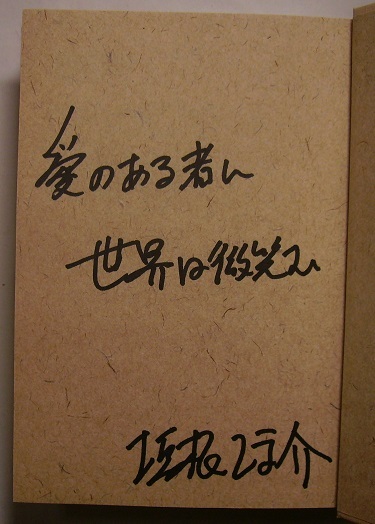 愛のある者に
世界は微笑み
垣根涼介